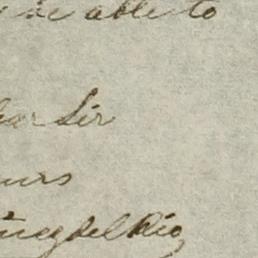 be able to
ear Sir
urs
ñez del Rio,